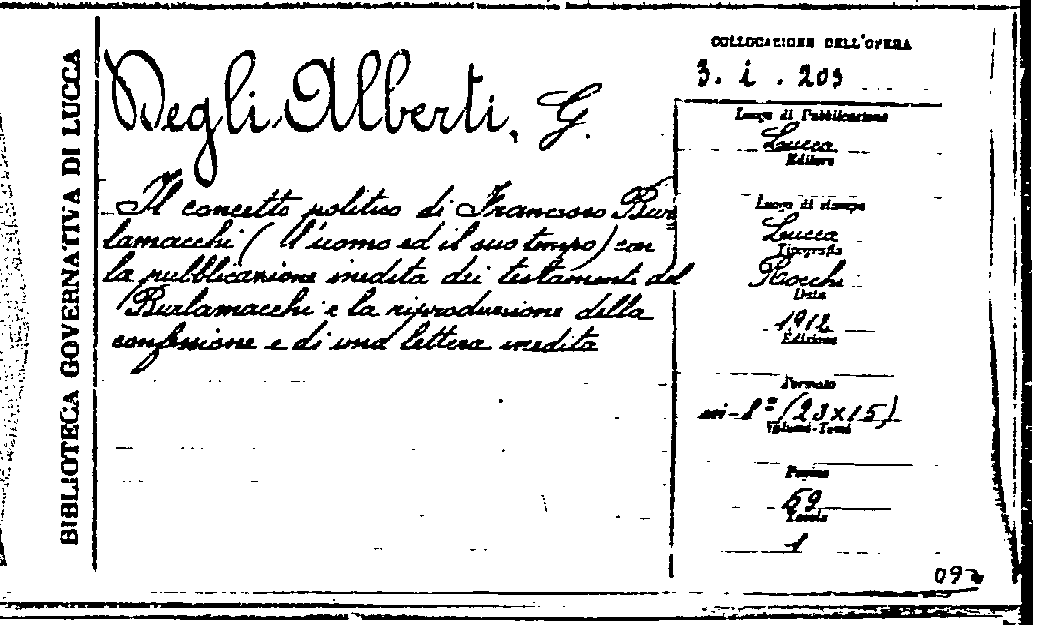 BIBLIOTECA GOVERNATIVA DI LUCCA
Degli Alberti, G.
Il concetto politico di Francesco Bur
lamacchi ( l'uomo ed il suo tempo) con
la pubblicazione inedita dei testamenti del
Burlamacchi e la riproduzione della
confessione e di una lettera inedita
COLLOCAZIONE DELL'OPERA
3. i. 203
Luogo di Pubblicazione
Lucca
Editore
Luogo di stampa
Lucca
Tipografia
Rocchi
Data
1912
Edizione
Formato
in-8º (23x15)
Volume-Tomi
Pagine
59
Tavole
1